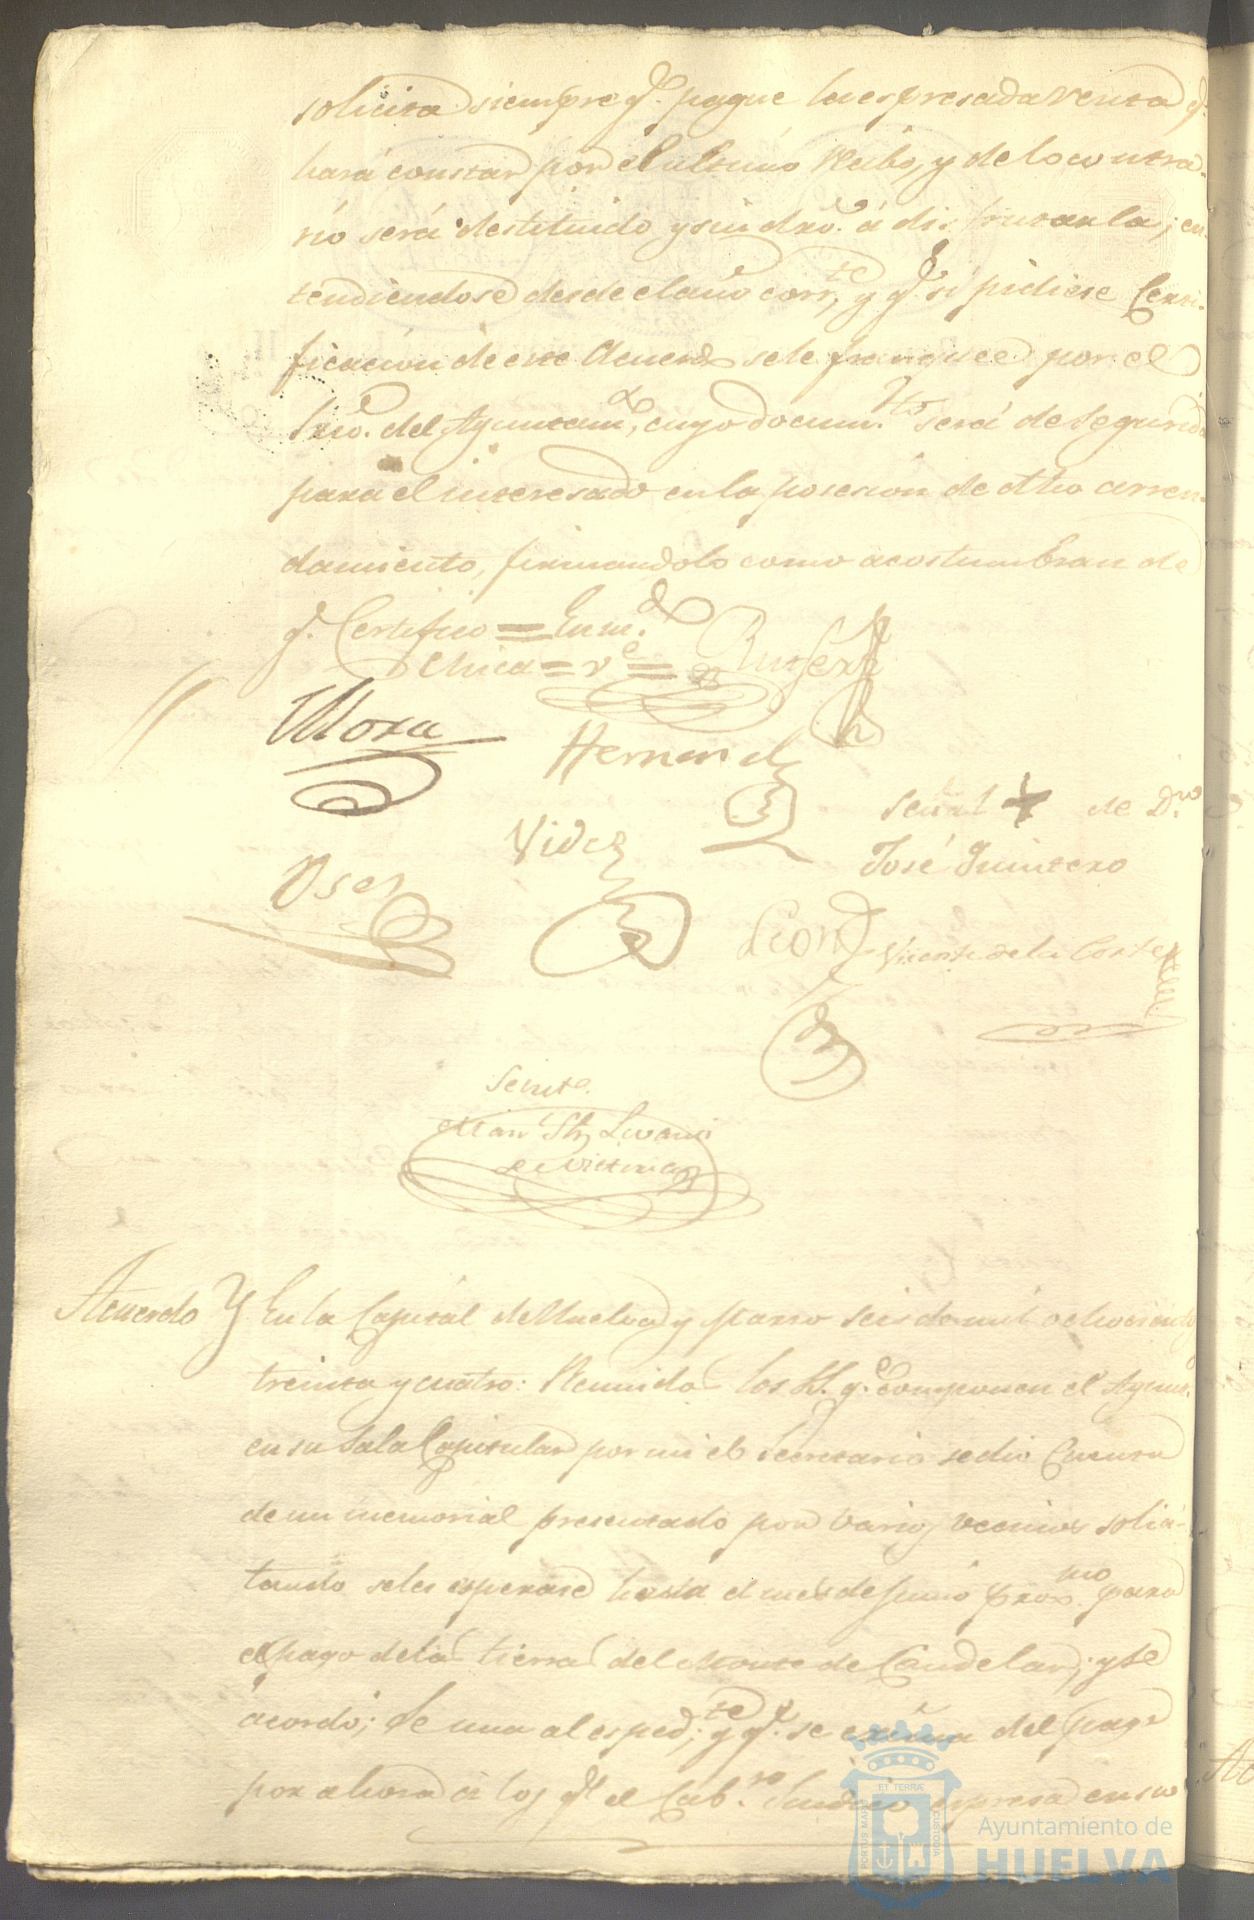 solicita siempre q.e pague la espresada renta q.e
hará constar por el ultimo Recibo, y de lo contra-
rio será destituido y sin dro. á disfrutarla; en-
tendiendose desde el año corr.te, y q.e si pidiese Certi-
ficacion de este Acuerdo se le franquee por el
Srio. del Ayuntam.to, cuyo docum.to será de seguridad
para el interesado en la posesion de otho arren-
damiento, firmandolo como acostumbran de
q.e Certifico = Enm.do
Unica = v.e =
Mora
Hernand.z
Señal + de D.n
José Quintero
Videz
Leon
Vicente de la Corte
Secret.o
Man.l
de Victoria
Acuerdo Y En la Capital de Huelva y Marzo seis de mil ochocientos
treinta y cuatro: Reunidos los SS. q.e componen el Ayunt.
en su Sala Capitular por mi el Secretario se dio Cuenta
de un memorial presentado por varios vecinos solici-
tando se les esperase hasta el mes de Junio prox.mo para
el pago de las tierras del Monte de Candelar; y se
acordó; Se una al esped.te; y q.e se exima del pago
por ahora á los q.e el Cab.ro Sindico espresa en su
Ayuntamiento de
HUELVA
PORTUS MARIS ET TERRAE CUSTODIA